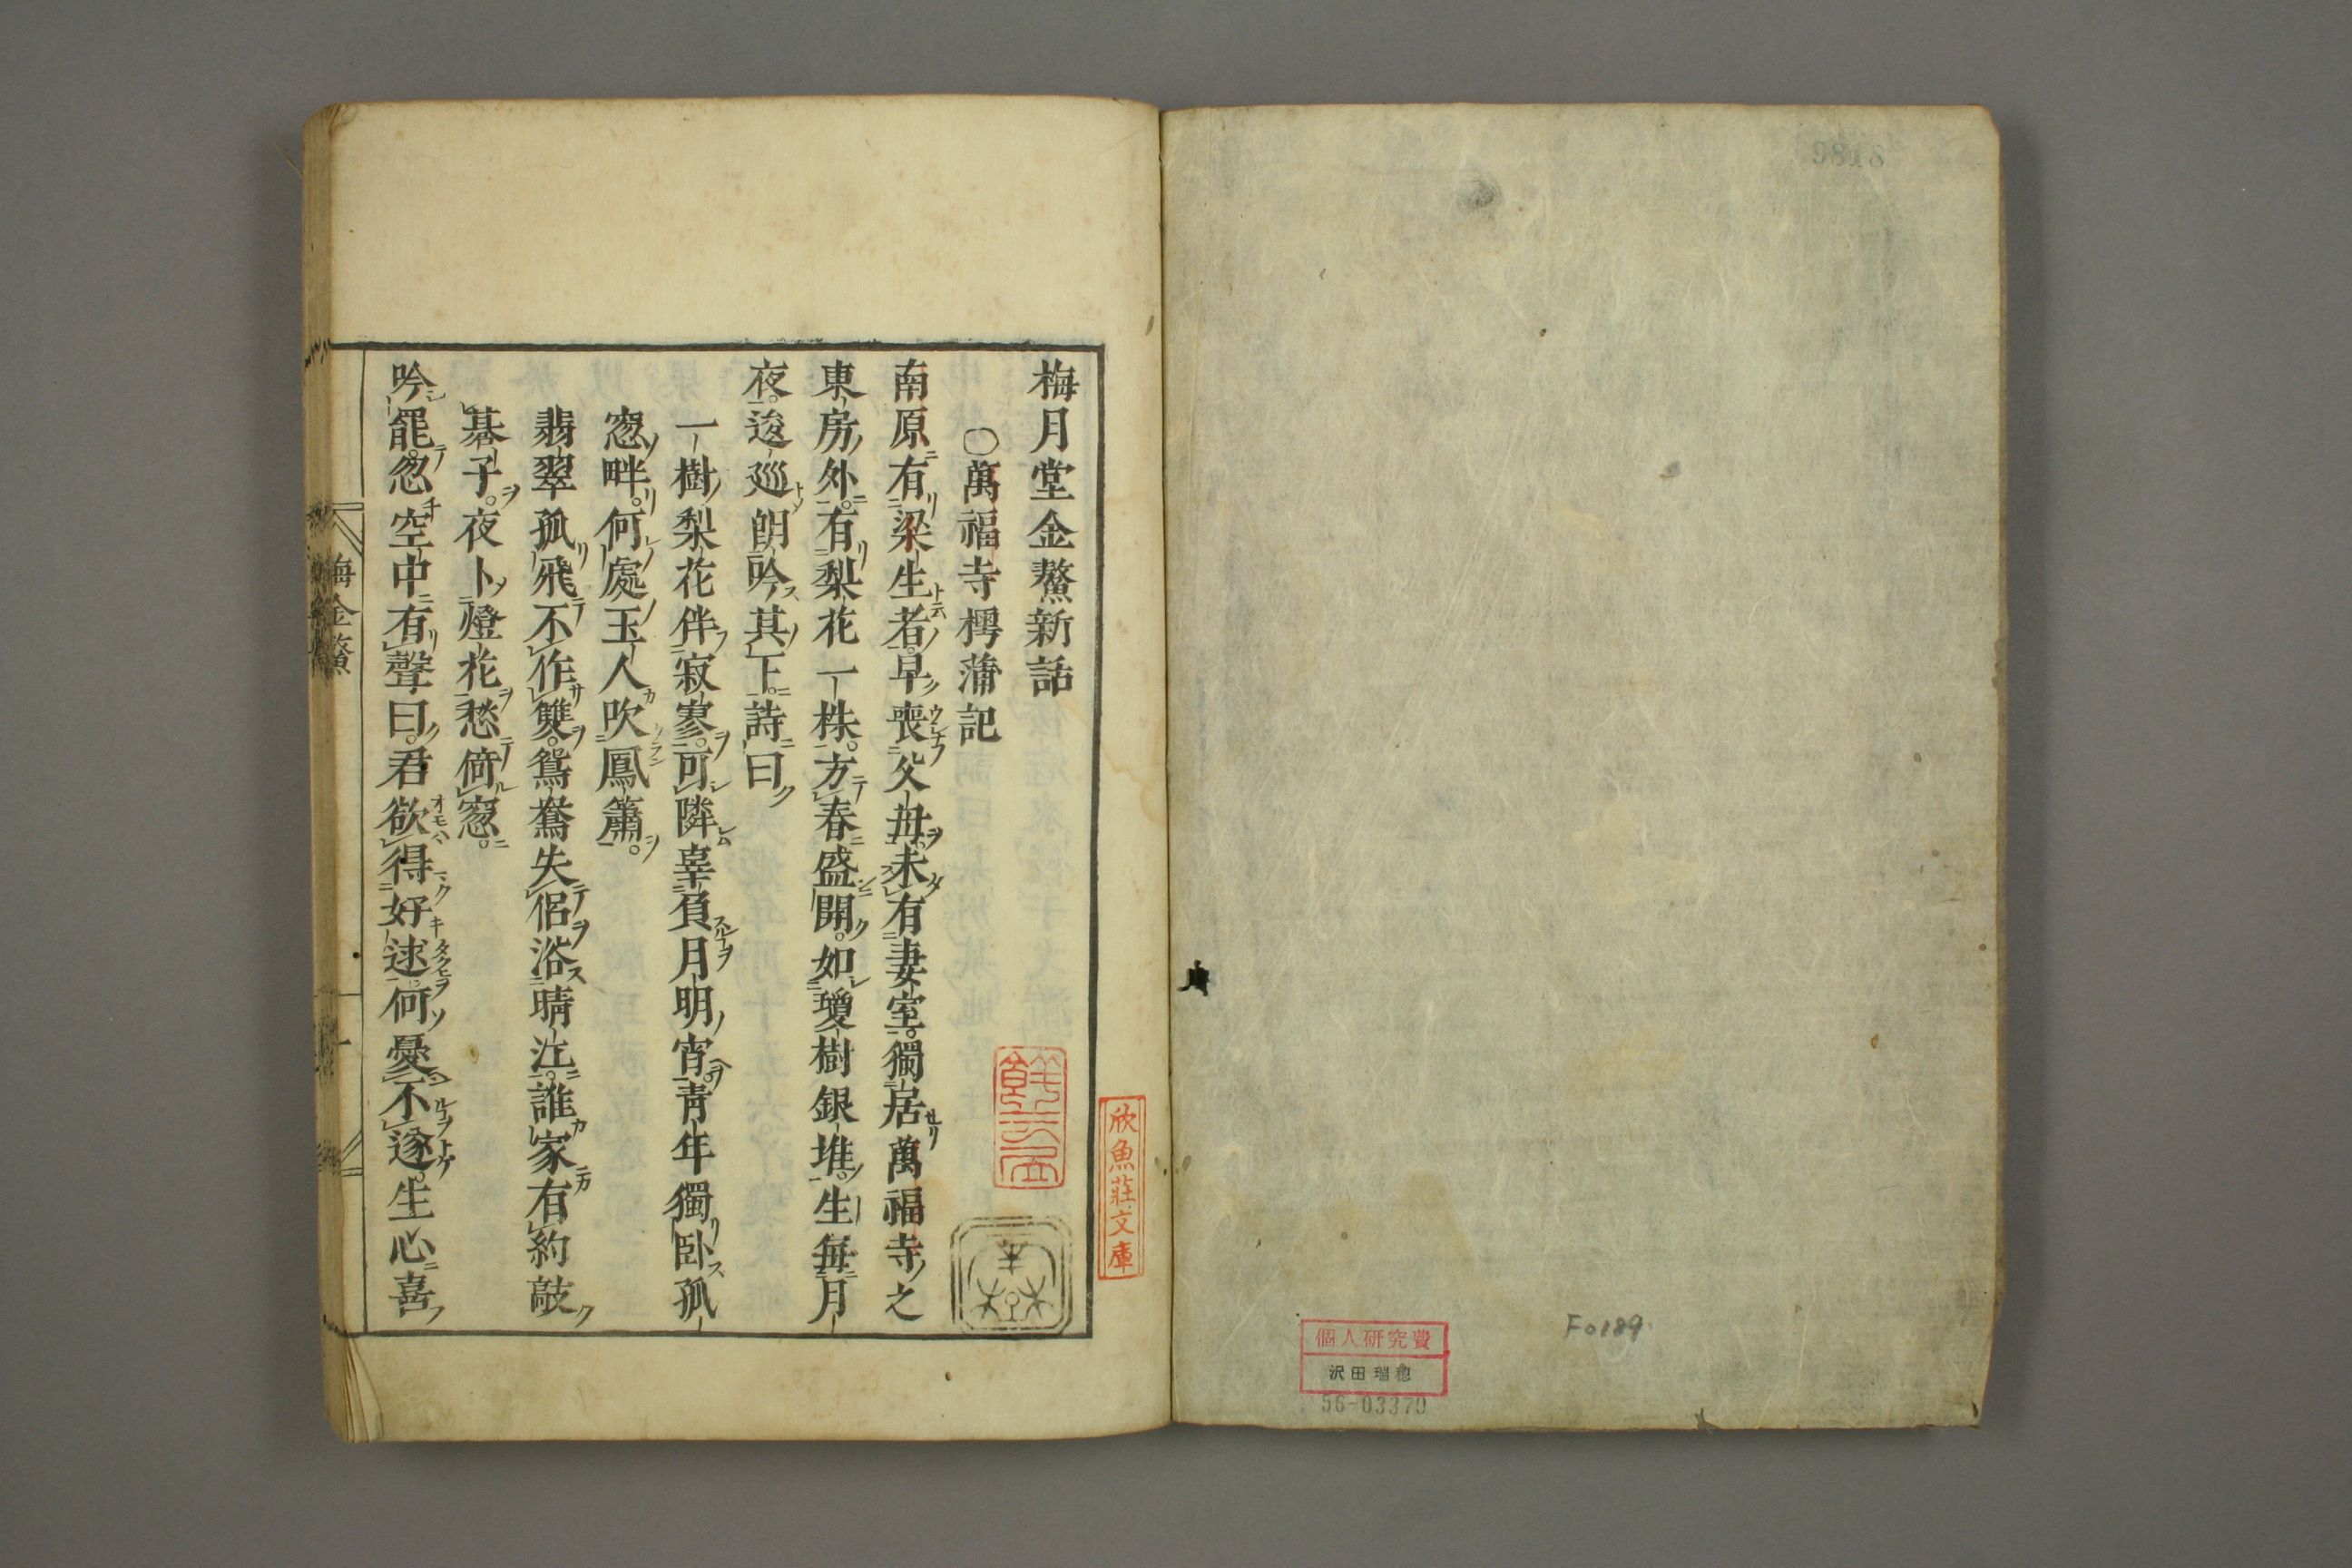 9818
F0189
個人研究費
沢田瑞穂
56-03370
欣魚莊文庫
梅月堂金鰲新話
〇萬福寺樗蒲記
南原有梁生者。早喪父母。未有妻室。獨居萬福寺之
東房外。有梨花一株。方春盛開。如瓊樹銀堆。生每月
夜。逡巡朗吟其下。詩曰
一樹梨花伴寂寥。可隣辜負月明宵。靑年獨卧孤
窓畔。何處玉人吹鳳簫。
翡翠孤飛不作雙。鴛鴦失侶浴晴江。誰家有約敲
碁子。夜卜燈花愁倚窓。
吟罷。忽空中有聲曰。君欲得好逑。何憂不遂。生心喜
梅金鰲
一